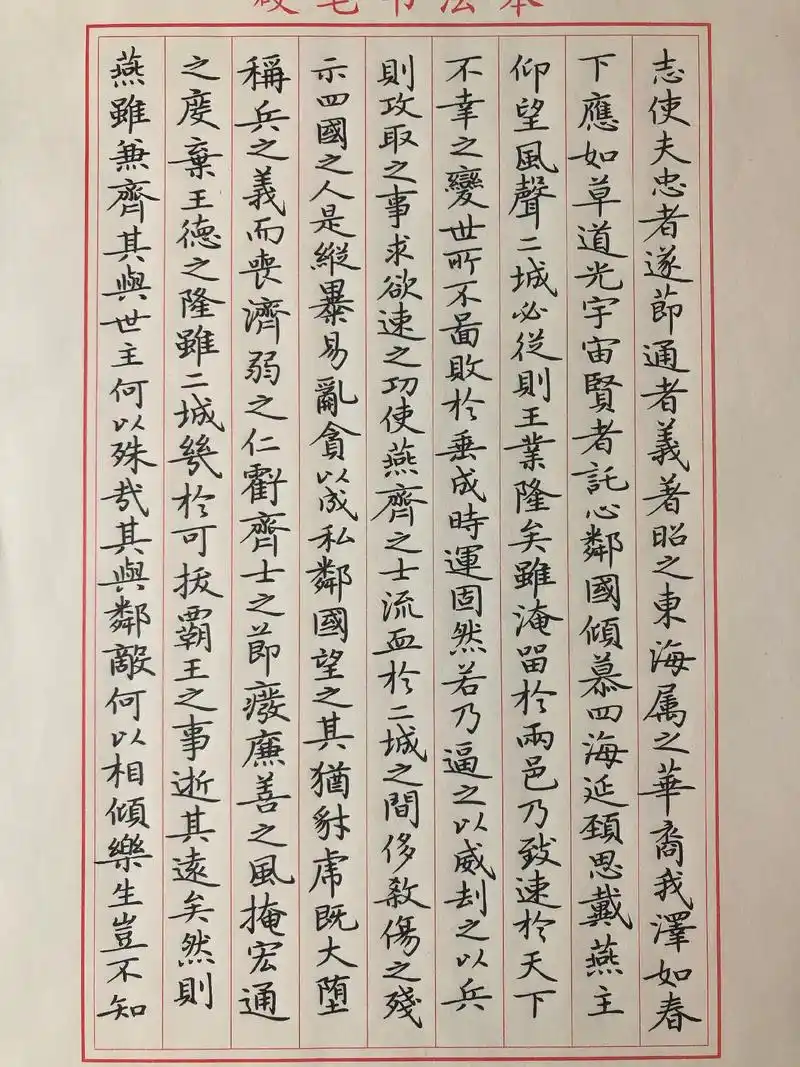 硬笔书法本
志使夫忠者遂節通者義著昭之東海属之華裔我澤如春
下應如草道光宇宙賢者託心鄰國傾慕四海延頚思戴燕主
仰望風聲二城必從則王業隆矣雖淹留於兩邑乃致速於天下
不幸之變世所不啚敗於垂成時運固然若乃逼之以威刦之以兵
則攻取之事求欲速之功使燕齊之士流血於二城之間侈敎傷之殘
示四國之人是縱暴易亂貪以成私鄰國望之其猶豺虎既大堕
稱兵之義而喪濟弱之仁虧齊士之節癈廉善之風掩宏通
之度棄王德之隆雖二城幾於可拔霸王之事逝其遠矣然則
燕雖兼齊其與世主何以殊哉其與鄰敵何以相傾樂生豈不知